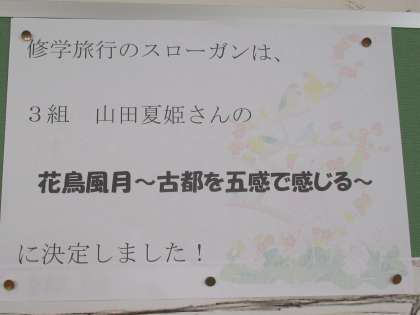 修学旅行のスローガンは、
３組　山田夏姫さんの
花鳥風月～古都を五感で感じる～
に決定しました！